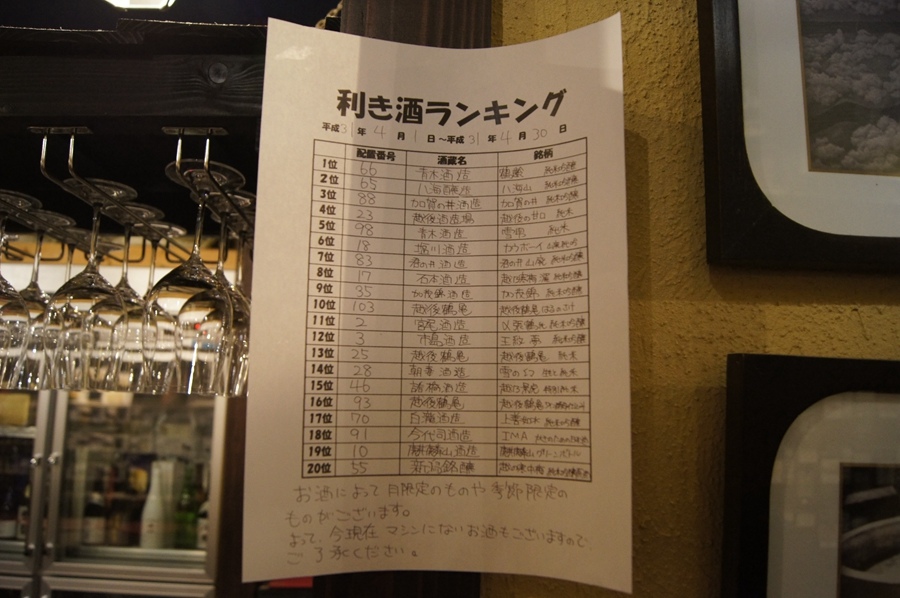 利き酒ランキング
平成31年4月1日〜平成31年4月30日
配置番号 酒蔵名 銘柄
1位 66 青木酒造 純米吟醸
2位 65 八海醸造 八海山 純米吟醸
3位 88 加賀の井酒造 加賀の井 純米吟醸
4位 23 越後酒造場 越後の甘口 純米
5位 98 青木酒造 雪男 純米
6位 18 塩川酒造 カウボーイ
7位 83 酒の井酒造
8位 17 石本酒造 越乃寒梅 灑 純米吟醸
9位 35 加茂錦酒造 加茂錦 純米吟醸
10位 103 越後鶴亀 越後鶴亀
11位 2 宮尾酒造 〆張鶴 純 純米吟醸
12位 3 市島酒造 王紋 夢 純米吟醸
13位 25 越後鶴亀 越後鶴亀 純米
14位 28 朝妻酒造 雪つづり 純米
15位 46 諸橋酒造 越乃景虎 純米
16位 93 越後鶴亀 越後鶴亀
17位 70 白瀧酒造 上善如水 純米吟醸
18位 91 今代司酒造 IMA
19位 10 麒麟山酒造 麒麟山 グリーンボトル
20位 55 新潟銘醸
お酒によって月限定のものや季節限定の
ものがございます。
よって、今現在マシンにないお酒もございますので、
ご了承ください。